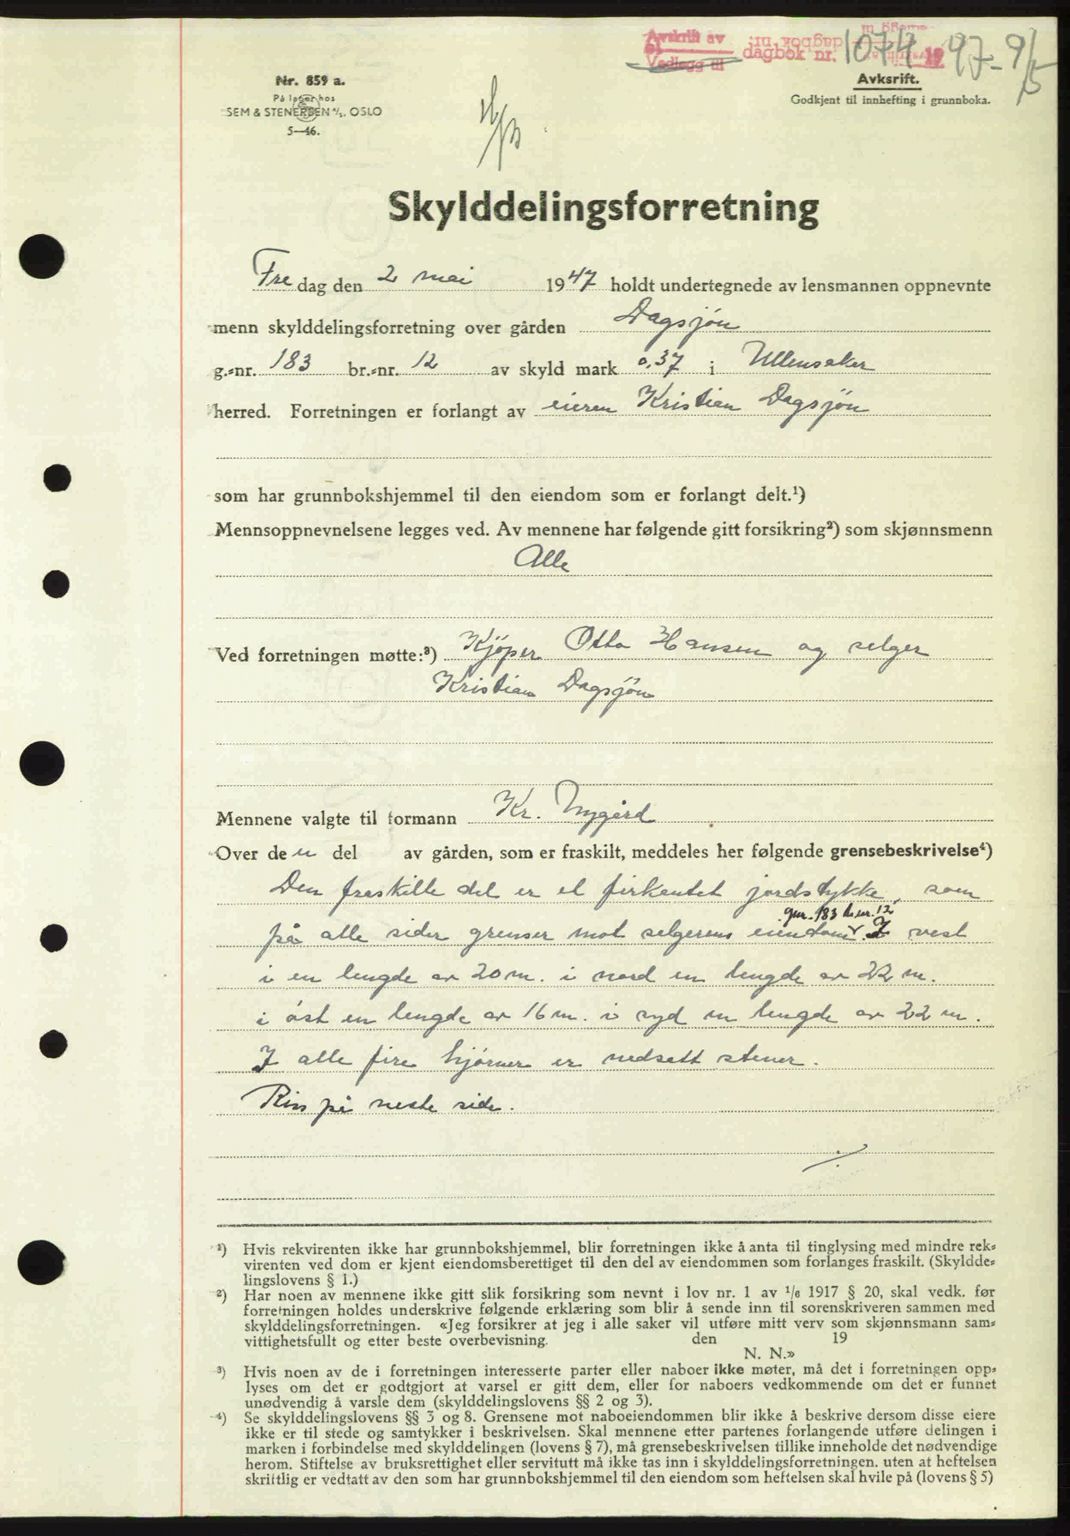 Avskrift av
Vedlegg til
dagbok nr. 1074 1947-9/5
Nr. 859 a.
På lager hos
SEM & STENERSEN A/S. OSLO
5—46.
Avksrift.
Godkjent til innhefting i grunnboka.
Skylddelingsforretning
Fre dag den 2 mai 1947 holdt undertegnede av lensmannen oppnevnte
menn skylddelingsforretning over gården Dagsjön
g.-nr. 183 br.-nr. 12 av skyld mark 0,37 i Ullensaker
herred. Forretningen er forlangt av eieren Kristian Dagsjön
som har grunnbokshjemmel til den eiendom som er forlangt delt.¹)
Mennsoppnevnelsene legges ved. Av mennene har følgende gitt forsikring²) som skjønnsmenn
Alle
Ved forretningen møtte:³) Kjöper Otto Hansen og selger
Kristian Dagsjön
Mennene valgte til formann Kr. Nygård
Over den del av gården, som er fraskilt, meddeles her følgende grensebeskrivelse⁴)
Den fraskille del er et firkentet jordstykke, som
gnr. 183 br.nr. 12
på alle sider grenser mot selgerens eiendom. I vest
i en lengde av 20 m. i nord en lengde av 22 m.
i öst en lengde av 16 m. i syd en lengde av 22 m.
I alle fire hjörner er nedsett stener.
på neste side.
./.
¹) Hvis rekvirenten ikke har grunnbokshjemmel, blir forretningen ikke å anta til tinglysing med mindre rek-
virenten ved dom er kjent eiendomsberettiget til den del av eiendommen som forlanges fraskilt. (Skyldde-
lingslovens § 1.)
²) Har noen av mennene ikke gitt slik forsikring som nevnt i lov nr. 1 av 1/6 1917 § 20, skal vedk. før
forretningen holdes underskrive følgende erklæring som blir å sende inn til sorenskriveren sammen med
skylddelingsforretningen. «Jeg forsikrer at jeg i alle saker vil utføre mitt verv som skjønnsmann sam-
vittighetsfullt og etter beste overbevisning. den 19
N. N.»
³) Hvis noen av de i forretningen interesserte parter eller naboer ikke møter, må det i forretningen opp-
lyses om det er godtgjort at varsel er gitt dem, eller for naboers vedkommende om det er funnet
unødvendig å varsle dem (skylddelingslovens §§ 2 og 3).
⁴) Se skylddelingslovens §§ 3 og 8. Grensene mot naboeiendommen blir ikke å beskrive dersom disse eiere
ikke er til stede og samtykker i beskrivelsen. Skal mennene etter partenes forlangende utføre delingen i
marken i forbindelse med skylddelingen (lovens § 7), må grensebeskrivelsen tillike inneholde det nødvendige
herom. Stiftelse av bruksrettighet eller servitutt må ikke tas inn i skylddelingsforretningen. uten at heftelsen
skriftlig er vedtatt av den som har grunnbokshjemmel til den eiendom som heftelsen skal hvile på (lovens § 5)